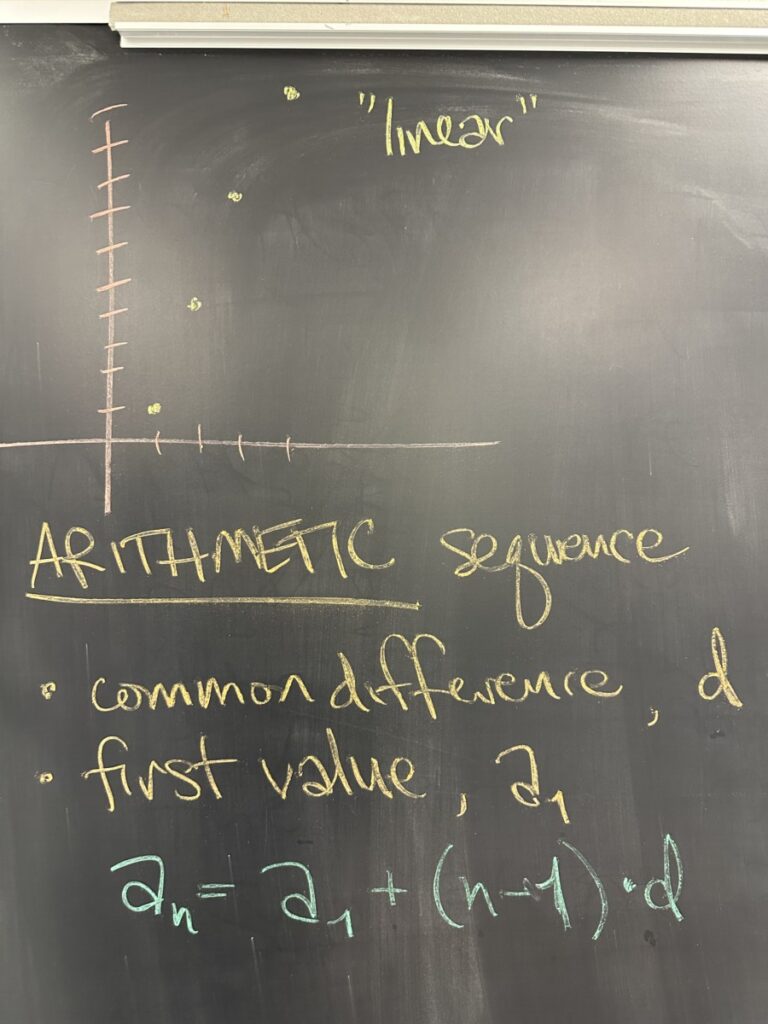 "linear"
ARITHMETIC sequence
• common difference, d
• first value, a₁
aₙ = a₁ + (n-1)·d